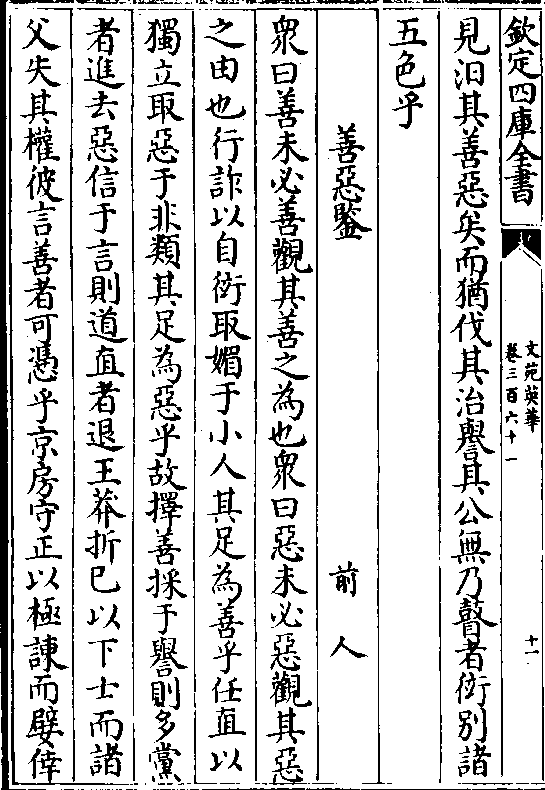 欽定四庫全書
文苑英華
卷三百六十一
十一
見汩其善惡矣而猶伐其治譽其公無乃瞽者衒別諸
五色乎
善惡鑒
前人
衆曰善未必善觀其善之為也衆曰惡未必惡觀其惡
之由也行詐以自衒取媚于小人其足為善乎任直以
獨立取惡于非類其足為惡乎故擇善採于譽則多黨
者進去惡信于言則道直者退王莽折已以下士而諸
父失其權彼言善者可憑乎京房守正以極諫而嬖倖